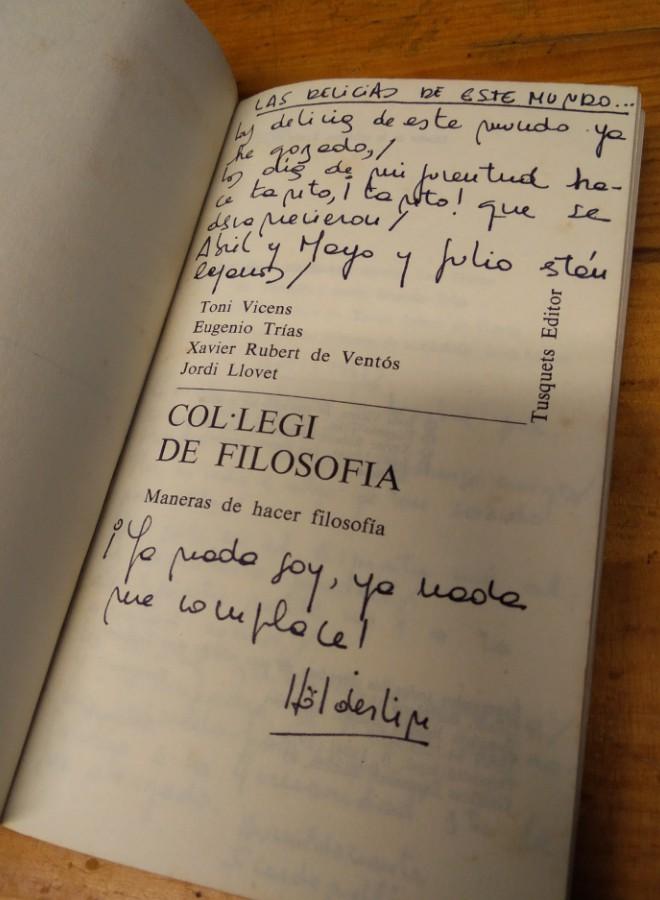 LAS DELICIAS DE ESTE MUNDO...
las delicias de este mundo ya
he gozado,/
los días de mi juventud ha-
ce tanto, ¡tanto! que se
desvanecieron/
Abril y Mayo y Julio están
lejanos/
Toni Vicens
Eugenio Trías
Xavier Rubert de Ventós
Jordi Llovet
Tusquets Editor
COL·LEGI
DE FILOSOFIA
Maneras de hacer filosofía
¡Ya nada soy, ya nada
me complace!
Hölderlin